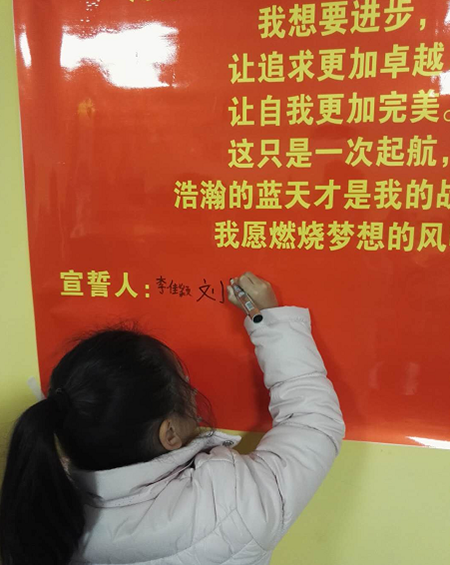 我想要进步，
让追求更加卓越
让自我更加完美。
这只是一次起航，
浩瀚的蓝天才是我的战
我愿燃烧梦想的风
宣誓人：李佳 刘